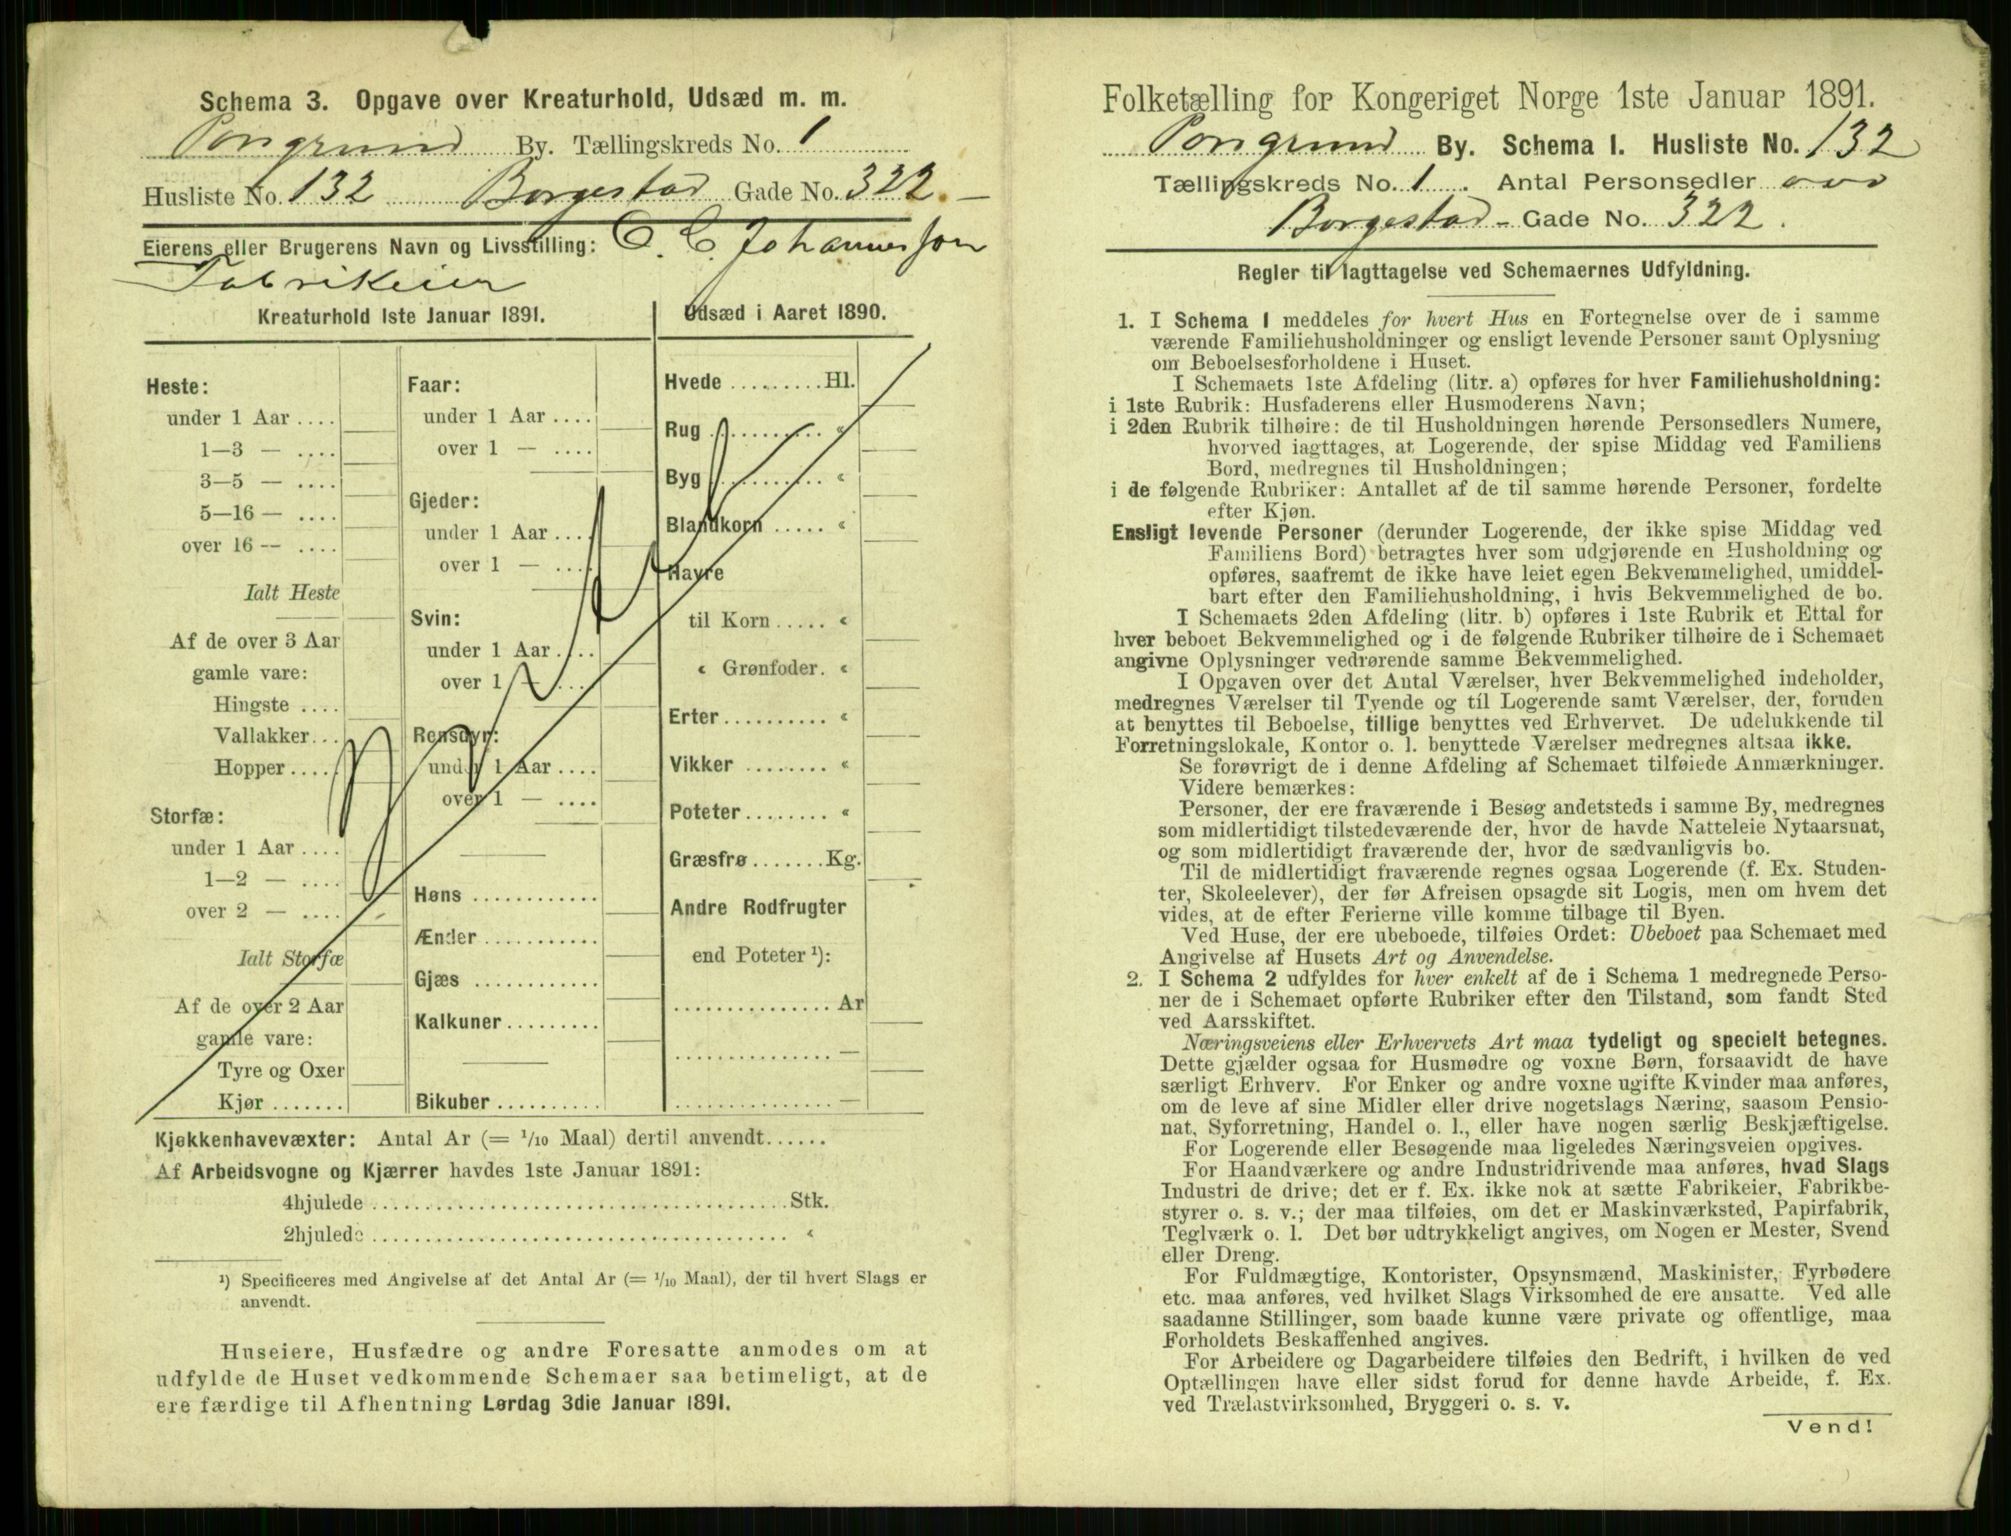 Schema 3. Opgave over Kreaturhold, Udsæd m. m.
Porsgrund By. Tællingskreds No. 1
Husliste No. 132 Borgestad Gade No. 322. –
Eierens eller Brugerens Navn og Livsstilling: C. C. Johannessen
Fabrikeier
Kreaturhold 1ste Januar 1891.
Heste:
under 1 Aar ....
1—3 — ....
3—5 — ....
5—16 — ....
over 16 — ....
Ialt Heste
Af de over 3 Aar
gamle vare:
Hingste ....
Vallakker...
Hopper.....
Storfæ:
under 1 Aar ....
1—2 — ....
over 2 — ....
Ialt Storfæ
Af de over 2 Aar
gamle vare:
Tyre og Oxer
Kjør.......
Faar:
under 1 Aar ....
over 1 — ....
Gjeder:
under 1 Aar ....
over 1 — ....
Svin:
under 1 Aar ....
over 1 — ....
Rensdyr:
under 1 Aar ....
over 1 — ....
Høns ............
Ænder...........
Gjæs ............
Kalkuner.........
Bikuber..........
Udsæd i Aaret 1890.
Hvede .........Hl.
Rug ........... «
Byg ........... «
Blandkorn ..... «
Havre
til Korn ..... «
« Grønfoder. «
Erter.......... «
Vikker ........ «
Poteter........ «
Græsfrø .......Kg.
Andre Rodfrugter
end Poteter ¹):
............... Ar
............... —
............... —
Kjøkkenhavevæxter: Antal Ar (= 1/10 Maal) dertil anvendt......
Af Arbeidsvogne og Kjærrer havdes 1ste Januar 1891:
4hjulede ........................................Stk.
2hjulede ........................................ «
¹) Specificeres med Angivelse af det Antal Ar (= 1/10 Maal), der til hvert Slags er
anvendt.
Huseiere, Husfædre og andre Foresatte anmodes om at
udfylde de Huset vedkommende Schemaer saa betimeligt, at de
ere færdige til Afhentning Lørdag 3die Januar 1891.
Folketælling for Kongeriget Norge 1ste Januar 1891.
Porsgrund By. Schema I. Husliste No. 132
Tællingskreds No. 1. Antal Personsedler ooo
Borgestad – Gade No. 322.
Regler til Iagttagelse ved Schemaernes Udfyldning.
1. I Schema 1 meddeles for hvert Hus en Fortegnelse over de i samme
værende Familiehusholdninger og ensligt levende Personer samt Oplysning
om Beboelsesforholdene i Huset.
I Schemaets 1ste Afdeling (litr. a) opføres for hver Familiehusholdning:
i 1ste Rubrik: Husfaderens eller Husmoderens Navn;
i 2den Rubrik tilhøire: de til Husholdningen hørende Personsedlers Numere,
hvorved iagttages, at Logerende, der spise Middag ved Familiens
Bord, medregnes til Husholdningen;
i de følgende Rubriker: Antallet af de til samme hørende Personer, fordelte
efter Kjøn.
Ensligt levende Personer (derunder Logerende, der ikke spise Middag ved
Familiens Bord) betragtes hver som udgjørende en Husholdning og
opføres, saafremt de ikke have leiet egen Bekvemmelighed, umiddel-
bart efter den Familiehusholdning, i hvis Bekvemmelighed de bo.
I Schemaets 2den Afdeling (litr. b) opføres i 1ste Rubrik et Ettal for
hver beboet Bekvemmelighed og i de følgende Rubriker tilhøire de i Schemaet
angivne Oplysninger vedrørende samme Bekvemmelighed.
I Opgaven over det Antal Værelser, hver Bekvemmelighed indeholder,
medregnes Værelser til Tyende og til Logerende samt Værelser, der, foruden
at benyttes til Beboelse, tillige benyttes ved Erhvervet. De udelukkende til
Forretningslokale, Kontor o. l. benyttede Værelser medregnes altsaa ikke.
Se forøvrigt de i denne Afdeling af Schemaet tilføiede Anmærkninger.
Videre bemærkes:
Personer, der ere fraværende i Besøg andetsteds i samme By, medregnes
som midlertidigt tilstedeværende der, hvor de havde Natteleie Nytaarsnat,
og som midlertidigt fraværende der, hvor de sædvanligvis bo.
Til de midlertidigt fraværende regnes ogsaa Logerende (f. Ex. Studen-
ter, Skoleelever), der før Afreisen opsagde sit Logis, men om hvem det
vides, at de efter Ferierne ville komme tilbage til Byen.
Ved Huse, der ere ubeboede, tilføies Ordet: Ubeboet paa Schemaet med
Angivelse af Husets Art og Anvendelse.
2. I Schema 2 udfyldes for hver enkelt af de i Schema 1 medregnede Perso-
ner de i Schemaet opførte Rubriker efter den Tilstand, som fandt Sted
ved Aarsskiftet.
Næringsveiens eller Erhvervets Art maa tydeligt og specielt betegnes.
Dette gjælder ogsaa for Husmødre og voxne Børn, forsaavidt de have
særligt Erhverv. For Enker og andre voxne ugifte Kvinder maa anføres,
om de leve af sine Midler eller drive nogetslags Næring, saasom Pensio-
nat, Syforretning, Handel o. l., eller have nogen særlig Beskjæftigelse.
For Logerende eller Besøgende maa ligeledes Næringsveien opgives.
For Haandværkere og andre Industridrivende maa anføres, hvad Slags
Industri de drive; det er f. Ex. ikke nok at sætte Fabrikeier, Fabrikbe-
styrer o. s. v.; der maa tilføies, om det er Maskinværksted, Papirfabrik,
Teglværk o. l. Det bør udtrykkeligt angives, om Nogen er Mester, Svend
eller Dreng.
For Fuldmægtige, Kontorister, Opsynsmænd, Maskinister, Fyrbødere
etc. maa anføres, ved hvilket Slags Virksomhed de ere ansatte. Ved alle
saadanne Stillinger, som baade kunne være private og offentlige, maa
Forholdets Beskaffenhed angives.
For Arbeidere og Dagarbeidere tilføies den Bedrift, i hvilken de ved
Optællingen have eller sidst forud for denne havde Arbeide, f. Ex.
ved Trælastvirksomhed, Bryggeri o. s. v.
Vend!